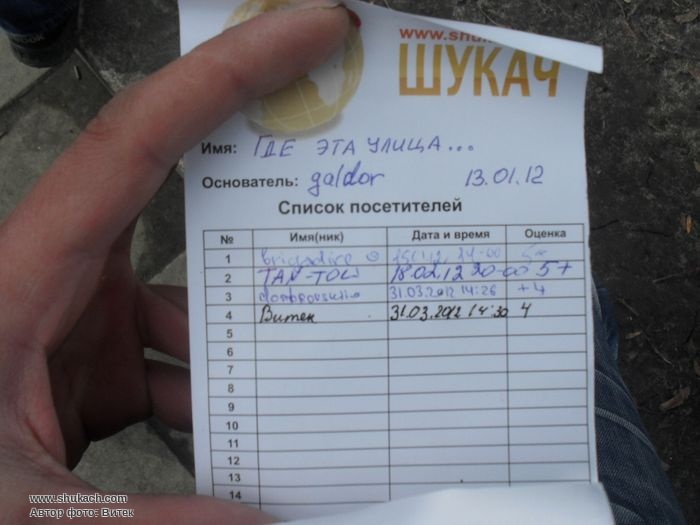 www.shu
ШУКАЧ
Имя: ГДЕ ЭТА УЛИЦА...
Основатель: galdor 13.01.12
Список посетителей
№ Имя(ник) Дата и время Оценка
1
2 TAN-TOW 18.02.12 20-00 5+
3 31.03.2012 14:26 +4
4 Витек 31.03.2012 14:30 4
5
6
7
8
9
10
11
12
13
14
www.shukach.com
Автор фото: Витек